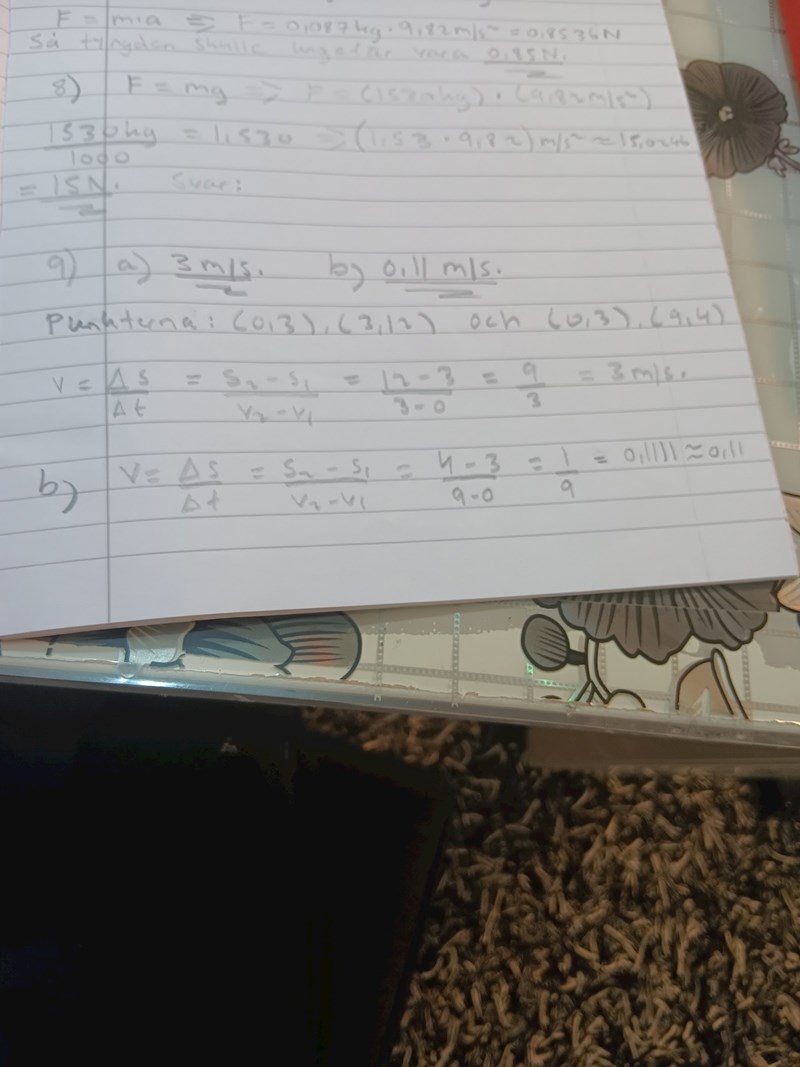 F = m·a => F = 0,087kg · 9,82 m/s² = 0,8534N
Så tyngden skulle ungefär vara 0,85N.
8) F = mg => F = (1530kg) · (9,82 m/s²)
1530kg / 1000 = 1,530 => (1,53 · 9,82) m/s² ≈ 15,0246
= 15N. Svar:
9) a) 3 m/s. b) 0,11 m/s.
Punkterna: (0,3), (3,12) och (0,3), (9,4)
V = Δs / Δt = S₂ - S₁ / V₂ - V₁ = 12 - 3 / 3 - 0 = 9 / 3 = 3 m/s.
b) V = Δs / Δt = S₂ - S₁ / V₂ - V₁ = 4 - 3 / 9 - 0 = 1 / 9 = 0,1111 ≈ 0,11